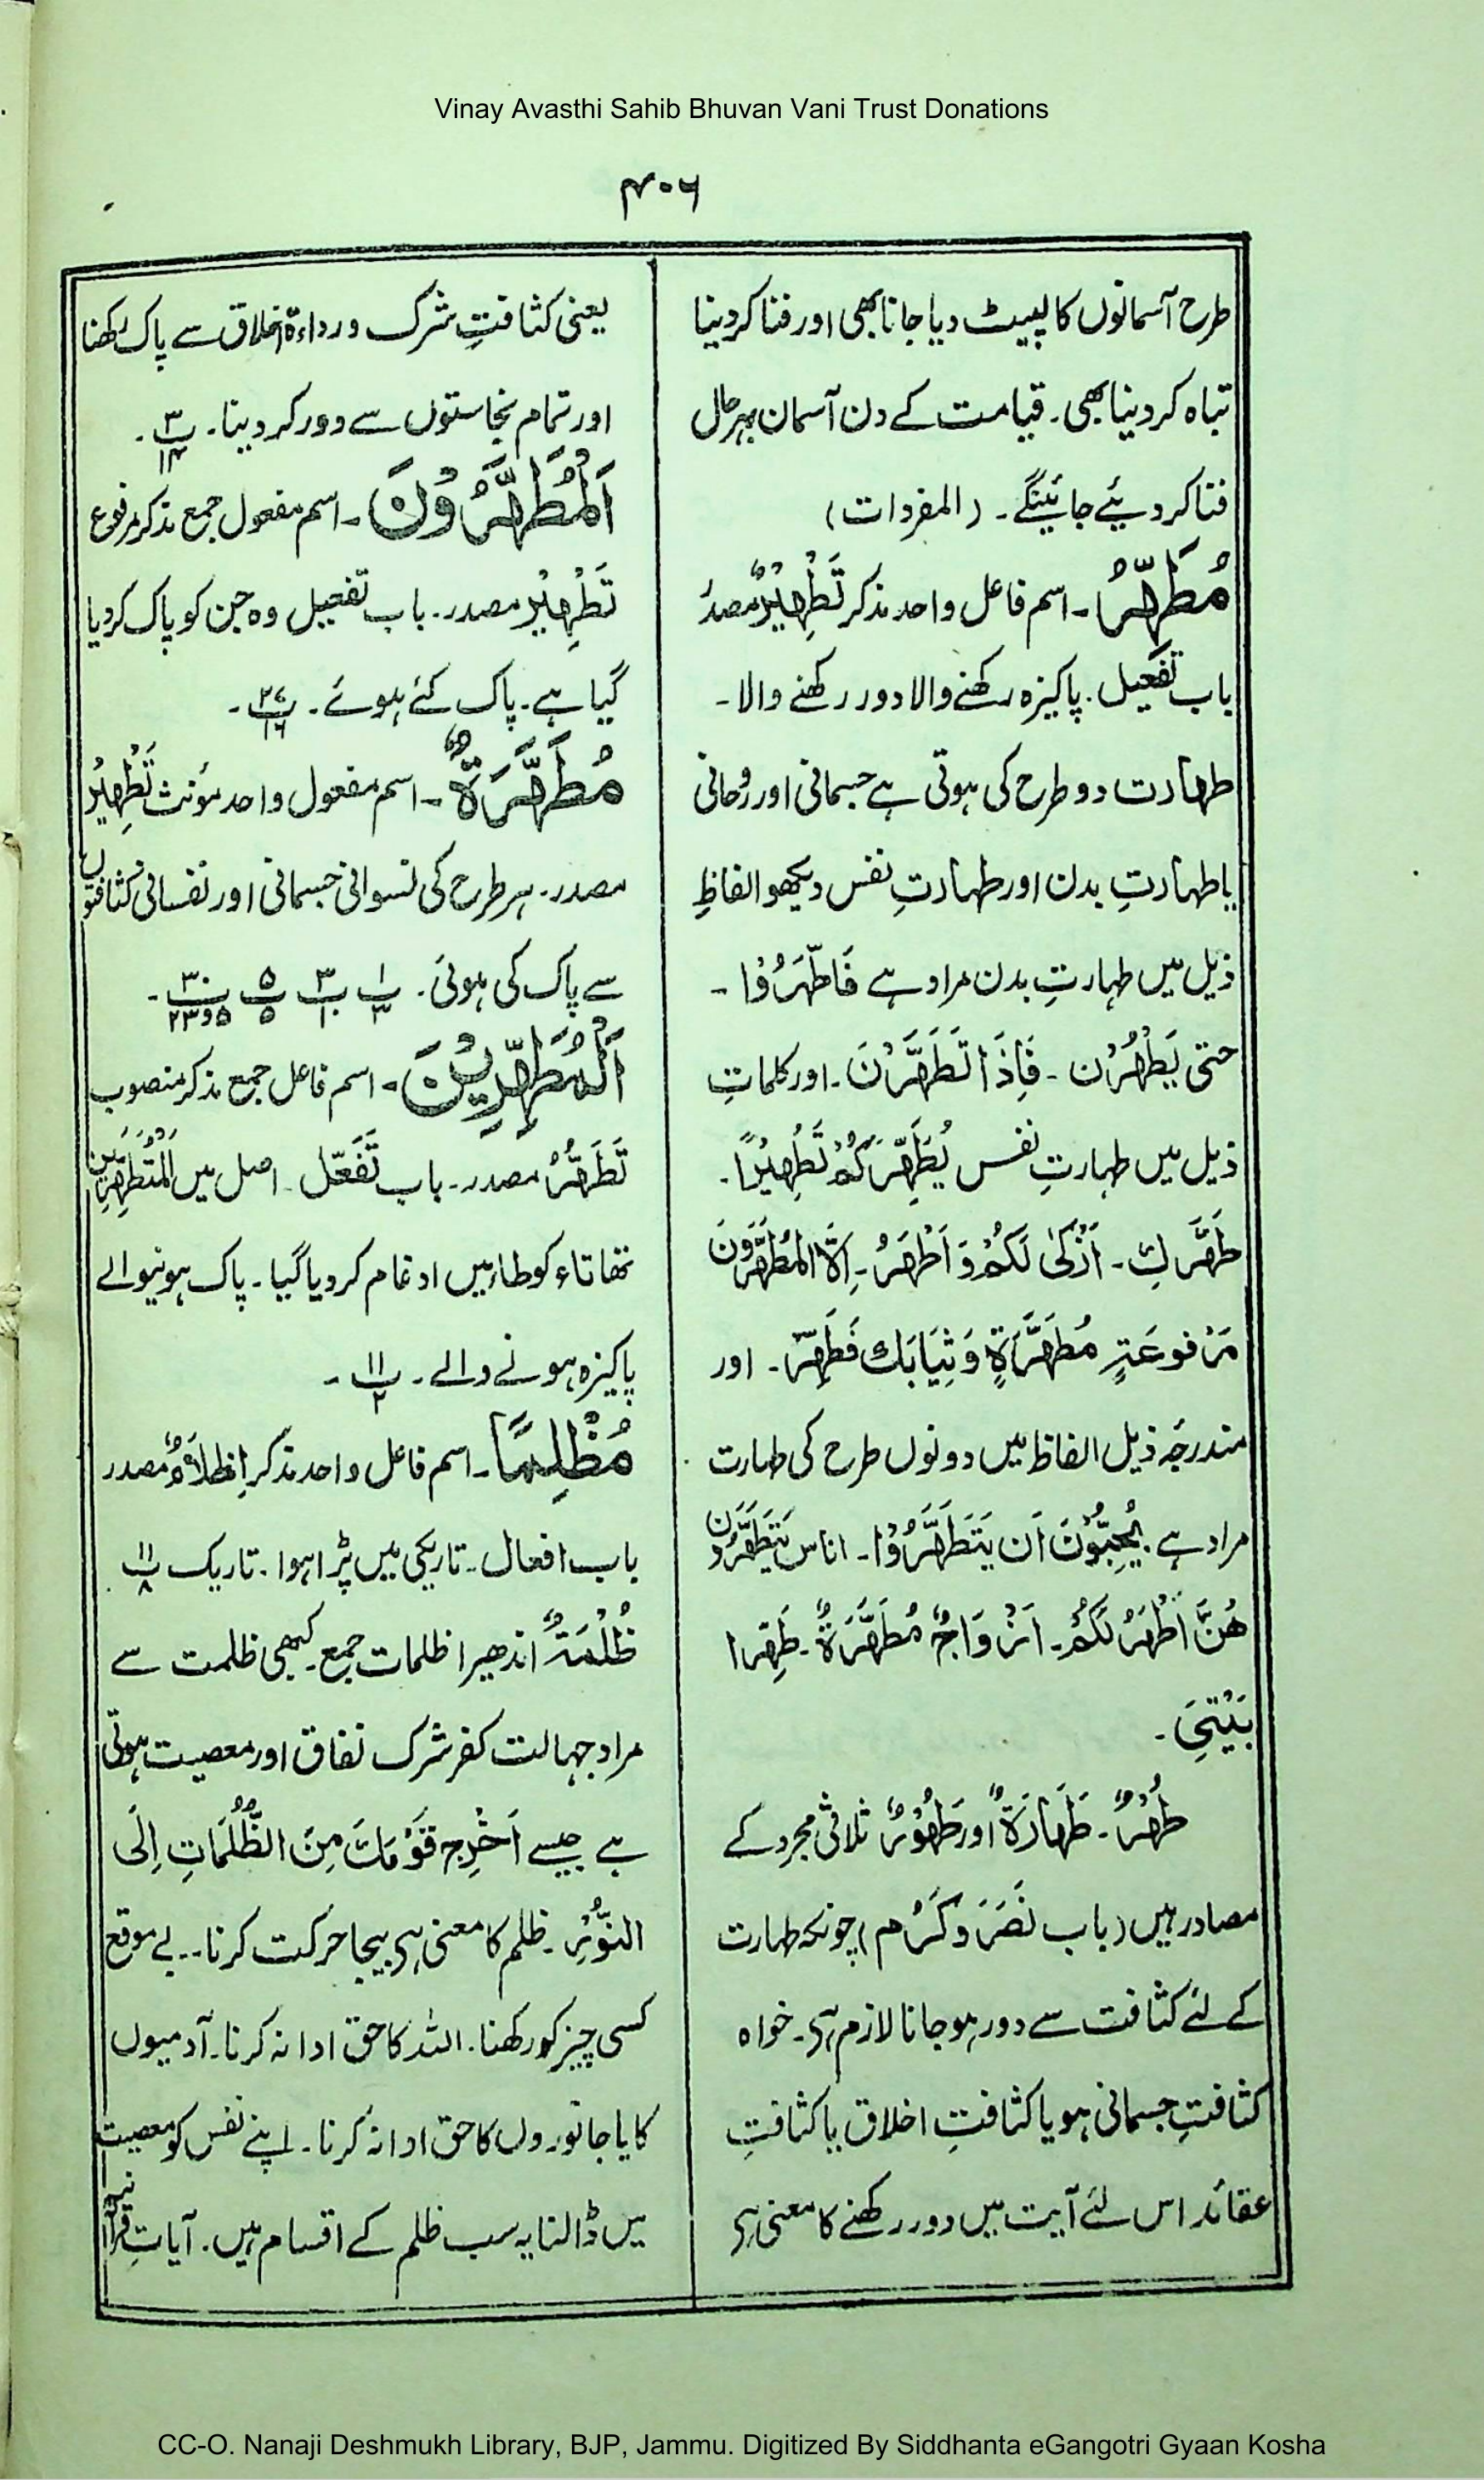 Vinay Avasthi Sahib Bhuvan Vani Trust Donations
۴۰۶
طرح آسمانوں کا لپیٹ دیا جانا بھی اور فنا کر دینا
تباہ کر دینا بھی۔ قیامت کے دن آسمان بہرحال
فنا کر دیئے جائینگے۔ (المفردات)
مُطَہِّرُ۔ اسم فاعل واحد مذکر تَطْہِیْرٌ مصدر
باب تفعیل۔ پاکیزہ رکھنے والا دور رکھنے والا۔
طہارت دو طرح کی ہوتی ہے جسمانی اور روحانی
یا طہارتِ بدن اور طہارتِ نفس دیکھو الفاظِ
ذیل میں طہارتِ بدن مراد ہے فَاطَّہَّرُوْا۔
حتی یَطْہُرْن۔ فَاِذَا تَطَہَّرْنَ۔ اور کلماتِ
ذیل میں طہارتِ نفس یُطَہِّرَکُمْ تَطْہِیْرًا۔
طَہَّرَكِ۔ اَزْکٰی لَکُمْ وَ اَطْہَرُ۔ اِلَّا الْمُطَہَّرُوْنَ
مَرْفوعَةٍ مُطَہَّرَةٍ وَثِیَابَكَ فَطَہِّرْ۔ اور
مندرجہ ذیل الفاظ میں دونوں طرح کی طہارت
مراد ہے۔ یُحِبُّوْنَ اَن یَتَطَہَّرُوْا۔ اناس یَتَطَہَّرُوْن
ھُنَّ اَطْہَرُ لَکُمْ۔ اَزْوَاجٌ مُطَہَّرَةٌ۔ طَہِّرا
بَیْتِیَ۔
طُہْرٌ۔ طَہَارَةٌ اور طَہُوْرٌ ثلاثی مجرد کے
مصادر ہیں (باب نَصَرَ وکَرُم) چونکہ طہارت
کے لئے کثافت سے دور ہو جانا لازم ہی۔ خواہ
کثافتِ جسمانی ہو یا کثافتِ اخلاق یا کثافتِ
عقائد اس لئے آیت میں دور رکھنے کا معنی ہی
یعنی کثافتِ شرک ورداءۃ اخلاق سے پاک رکھنا
اور تمام نجاستوں سے دور کر دینا۔ پ۳/۱۴۔
اَلْمُطَہَّرُوْنَ۔ اسم مفعول جمع مذکر مرفوع
تَطْہِیْر مصدر۔ باب تفعیل وہ جن کو پاک کر دیا
گیا ہے۔ پاک کئے ہوئے۔ پ۲۷/۱۶۔
مُطَہَّرَةٌ۔ اسم مفعول واحد مؤنث تَطْہِیْرُ
مصدر۔ ہر طرح کی نسوانی جسمانی اور نفسانی کثافتوں
سے پاک کی ہوئی۔ پ۱/۳ پ۳/۱۰ پ۵/۵ پ۳۰/۵و۲۳۔
اَلْمُطَّہِّرِیْنَ۔ اسم فاعل جمع مذکر منصوب
تَطَہُّرُ مصدر۔ باب تَفَعُّل۔ اصل میں الْمُتَطَہِّرِیْنَ
تھا تاء کو طاء میں ادغام کر دیا گیا۔ پاک ہونیوالے
پاکیزہ ہونے والے۔ پ۱۱/۲۔
مُظْلِمًا۔ اسم فاعل واحد مذکر اِظْلَامٌ مصدر
باب افعال۔ تاریکی میں پڑا ہوا۔ تاریک پ۱۱/۸۔
ظُلْمَةٌ اندھیرا ظلمات جمع۔ کبھی ظلمت سے
مراد جہالت کفر شرک نفاق اور معصیت ہوتی
ہے جیسے اَخْرِج قَوْمَكَ مِنَ الظُّلُمَاتِ اِلَی
النُّوْرِ۔ ظلم کا معنی ہی بیجا حرکت کرنا۔۔ بے موقع
کسی چیز کو رکھنا۔ اللہ کا حق ادا نہ کرنا۔ آدمیوں
کا یا جانوروں کا حق ادا نہ کرنا۔ اپنے نفس کو معصیت
میں ڈالنا یہ سب ظلم کے اقسام ہیں۔ آیاتِ قرآنیہ
CC-O. Nanaji Deshmukh Library, BJP, Jammu. Digitized By Siddhanta eGangotri Gyaan Kosha